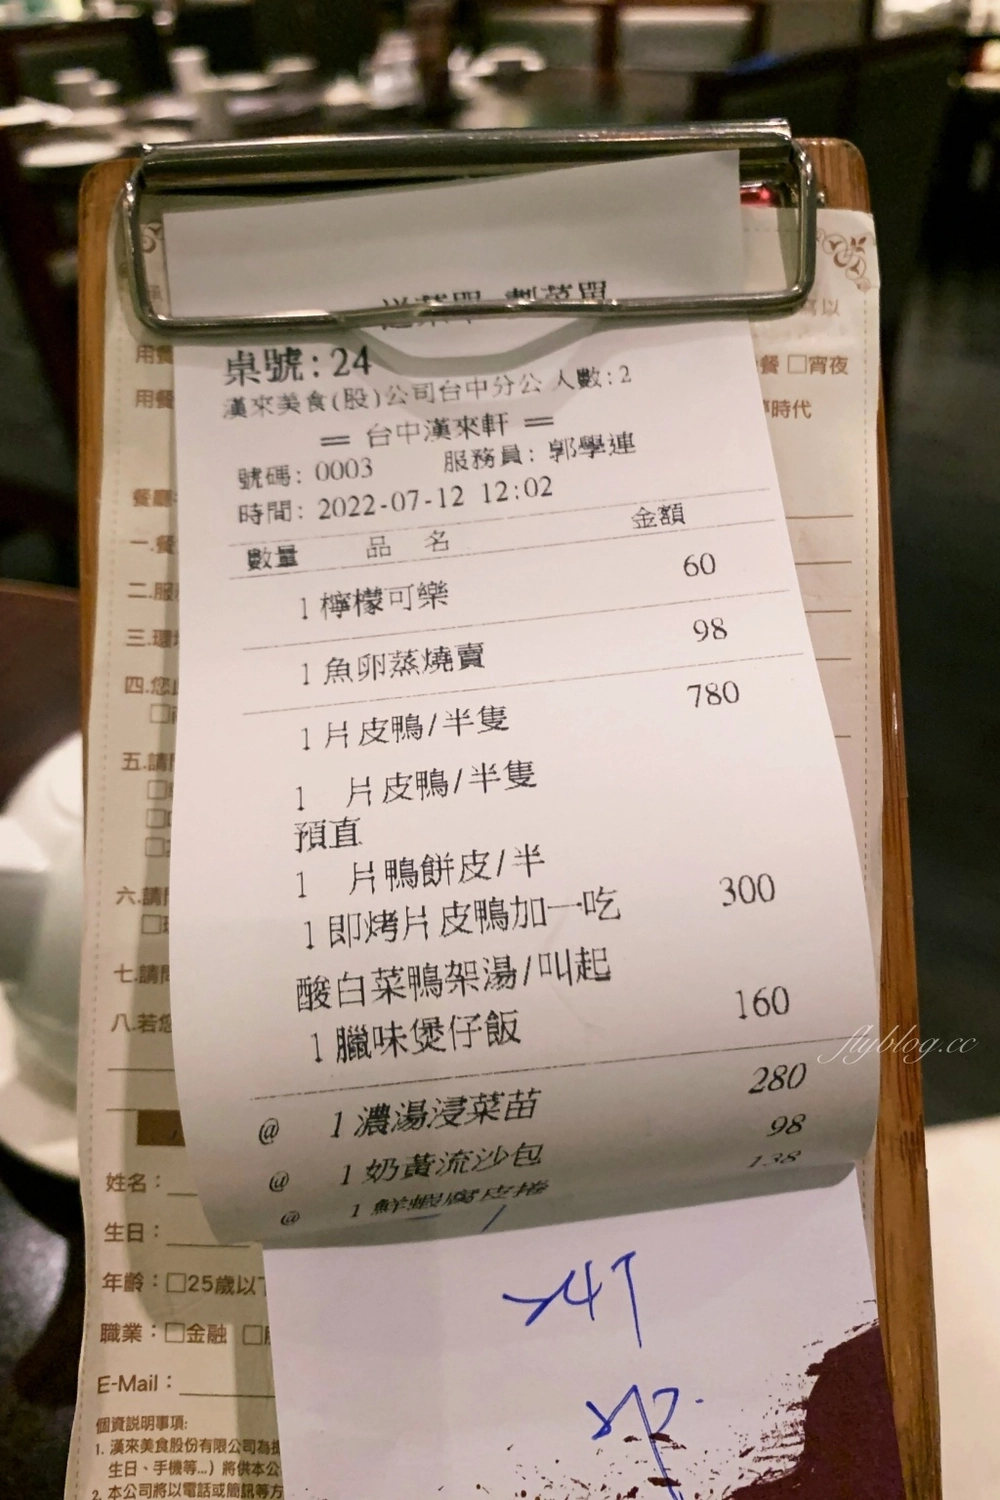 劃菜單
桌號:24
漢來美食(股)公司台中分公 人數:2
== 台中漢來軒 ==
號碼: 0003 服務員: 郭學連
時間: 2022-07-12 12:02
數量 品 名 金額
1 檸檬可樂 60
1 魚卵蒸燒賣 98
1 片皮鴨/半隻 780
1 片皮鴨/半隻
預直
1 片鴨餅皮/半
1 即烤片皮鴨加一吃 300
酸白菜鴨架湯/叫起
1 臘味煲仔飯 160
@ 1 濃湯浸菜苗 280
@ 1 奶黃流沙包 98
@ 1 鮮蝦腐皮捲 138
用餐
用餐
餐 □宵夜
時代
餐廳
一.餐
二.服
三.環
四.您
五.請
六.請
七.請
八.若您
姓名:
生日:
年齡:□25歲以
職業:□金融
E-Mail:
個資說明事項:
1. 漢來美食股份有限公司為
生日、手機等...)將供本公
2. 本公司將以電話或簡訊等方
flyblog.cc